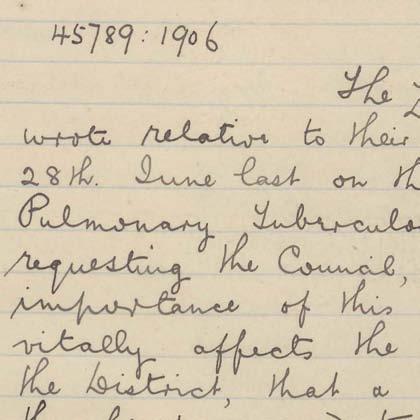 45789:1906
The
wrote relative to their
28th. June last on th
Pulmonary Tuberculo
requesting the Council,
importance of this
vitally affects the
the District, that a